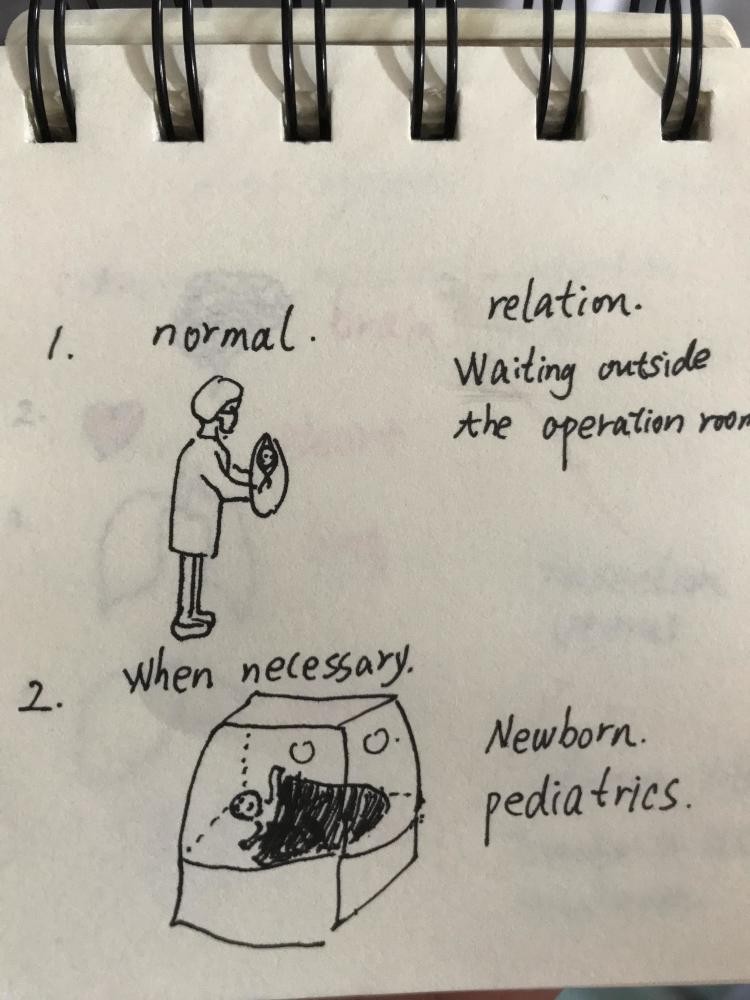 1. normal.
relation.
Waiting outside
the operation room
2. When necessary.
Newborn.
pediatrics.